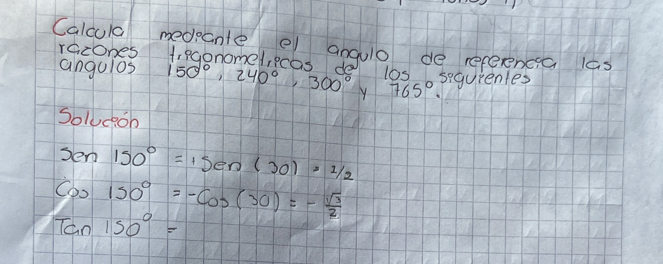 Calcula mediante el angulo de referencia las
razones trigonometricas de los siguientes
angulos 150°, 240°, 300° y 765°.
Solución
Sen 150° = Sen (30) = 1/2
Cos 150° = -Cos (30) = - √3/2
Tan 150° =